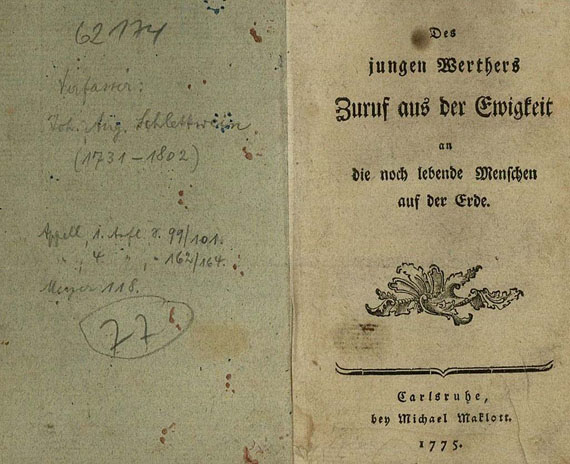 62174
Verfasser:
Joh. Aug. Schlettwein
(1731–1802)
Appell, 1. Aufl. S. 99/101.
" , 4 " , " 162/164.
Meyer 118.
77
Des
jungen Werthers
Zuruf aus der Ewigkeit
an
die noch lebende Menschen
auf der Erde.
Carlsruhe,
bey Michael Maklott.
1775.